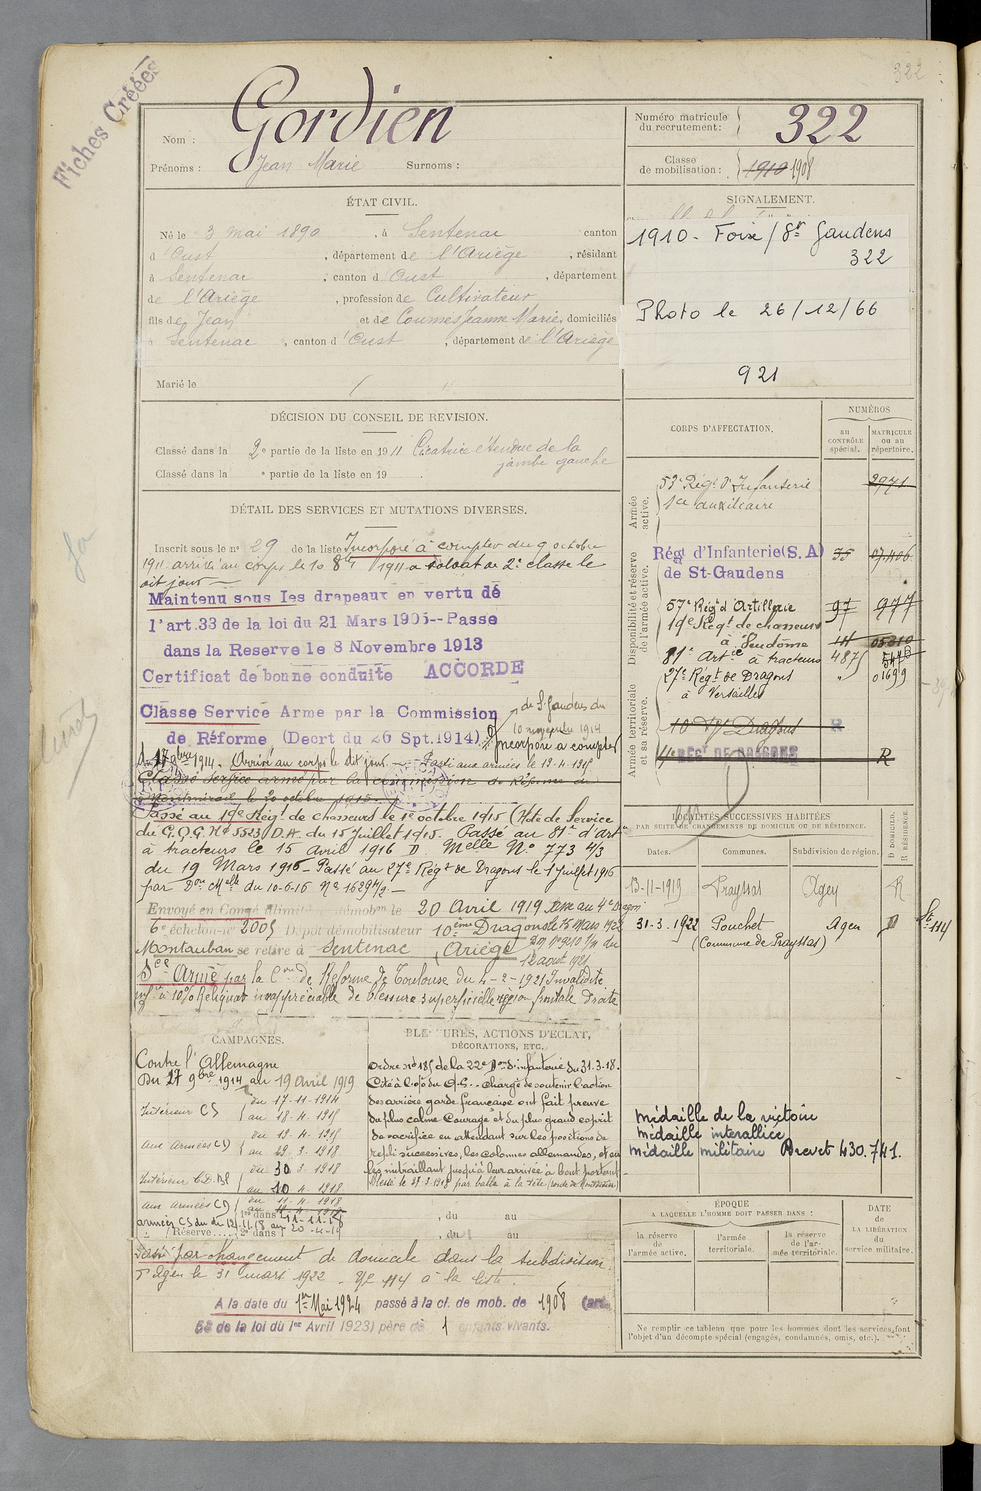 Fiches Créées
322
Nom : Gordien
Prénoms : Jean Marie Surnoms :
Numéro matricule du recrutement : 322
Classe de mobilisation : 1910 1908
ÉTAT CIVIL.
Né le 3 mai 1890, à Sentenac canton
d'Oust, département de l'Ariège, résidant
à Sentenac, canton d'Oust, département
de l'Ariège, profession de Cultivateur
fils de Jean et de Coumes Jeanne Marie, domiciliés
à Sentenac, canton d'Oust, département de l'Ariège
Marié le
SIGNALEMENT.
1910 - Foix / St Gaudens
322
Photo le 26/12/66
921
DÉCISION DU CONSEIL DE REVISION.
Classé dans la 2e partie de la liste en 1911 Cicatrice étendue de la
jambe gauche
Classé dans la e partie de la liste en 19
DÉTAIL DES SERVICES ET MUTATIONS DIVERSES.
Inscrit sous le no 29 de la liste Incorporé à compter du 9 octobre
1911 arrivé au corps le 10 8bre 1911 a soldat de 2e classe le
dit jour
Maintenu sous les drapeaux en vertu de
l'art.33 de la loi du 21 Mars 1905--Passe
dans la Reserve le 8 Novembre 1913
Certificat de bonne conduite ACCORDE
Classe Service Arme par la Commission de St Gaudens du
de Réforme (Decrt du 26 Spt.1914) 10 novembre 1914
Incorporé à compter
du 17 9bre 1914. Arrivé au corps le dit jour. - Parti aux armées le 13-4-1915
Classé service armé par la commission de Réforme de
Montmirail le 20 octobre 1915.
Passé au 19e Régt de chasseurs le 1e octobre 1915 (Note de Service
du G.Q.G. No 5523/D.A. du 15 juillet 1915. Passé au 81e d'arte
à tracteurs le 15 Avril 1916 D Melle No 773 4/3
du 19 Mars 1916 - Passé au 27e Régt de Dragons le 1 juillet 1916
par Don Melle du 10-6-16 No 16294/2.-
Envoyé en Congé illimité démobon le 20 Avril 1919 Passé au 4e Dragon
6e échelon no 2005 Dépôt démobilisateur 10ème Dragons le 15 mars 1922
Montauban se retire à Sentenac (Ariège)
12 août 1921
Sce Armé par la Con de Réforme de Toulouse du 4-2-1921 Invalidité
infre à 10% Reliquat inappréciable de blessure superficielle région frontale Droite
CAMPAGNES.
Contre l'Allemagne
Du 17 9bre 1914 au 19 avril 1919
Intérieur CS du 17-11-1914
au 18-4-1915
aux armées CD du 19-4-1915
au 29-3-1918
Intérieur C.D. Bl du 30 3 1918
au 10 4 1918
aux armées CD du 11-4-1918
au 11-11-18
armées CS du 12-11-18 au 20-4-19
Réserve 1re dans l
2e dans l
, du au
, du au
BLESSURES, ACTIONS D'ÉCLAT,
DÉCORATIONS, ETC.
Ordre no 185 de la 22e Don d'infanterie du 31.3.18.
Cité à l'o/du Q.G. - chargé de soutenir l'action
des arrière garde française ont fait preuve
du plus calme Courage et du plus grand esprit
de sacrifice en attendant sur les positions de
repli successives, les colonnes allemandes, et en
les mitraillant jusqu'à leur arrivée à bout portant
Blessé le 29-3-1918 par balle à la tête
Passé par changement de domicile dans la subdivision
d'Agen le 31 mars 1922 - No 114 à la liste.
A la date du 1er Mai 1924 passé à la cl. de mob. de 1908 (art.
58 de la loi du 1er Avril 1923) père de 1 enfants vivants.
CORPS D'AFFECTATION.
NUMÉROS
au CONTRÔLE spécial.
MATRICULE ou au répertoire.
Armée active.
53e Régt d'Infanterie 2971
1ce auxiliaire
Disponibilité et réserve de l'armée active.
Régt d'Infanterie (S.A)
de St-Gaudens
57e Régt d'Artillerie 97 977
19e Régt de chasseurs
à Vendôme
81e Artie à tracteurs 487
27e Régt de Dragons 01699
à Versailles
Armée territoriale et sa réserve.
10 Dragons R
4e REGt DE DRAGONS R
LOCALITÉS SUCCESSIVES HABITÉES
PAR SUITE DE CHANGEMENTS DE DOMICILE OU DE RÉSIDENCE.
Dates. Communes. Subdivision de région. D DOMICILE. R RÉSIDENCE.
13-11-1919 Prayssas Agen R
31-3-1922 Pouchet Agen D Lt 114
(Commune de Prayssas)
Médaille de la victoire
Médaille interalliée
Médaille militaire Brevet 430.741.
ÉPOQUE
A LAQUELLE L'HOMME DOIT PASSER DANS :
la réserve de l'armée active.
l'armée territoriale.
la réserve de l'armée territoriale.
DATE de LA LIBÉRATION du service militaire.
Ne remplir ce tableau que pour les hommes dont les services font
l'objet d'un décompte spécial (engagés, condamnés, omis, etc.).